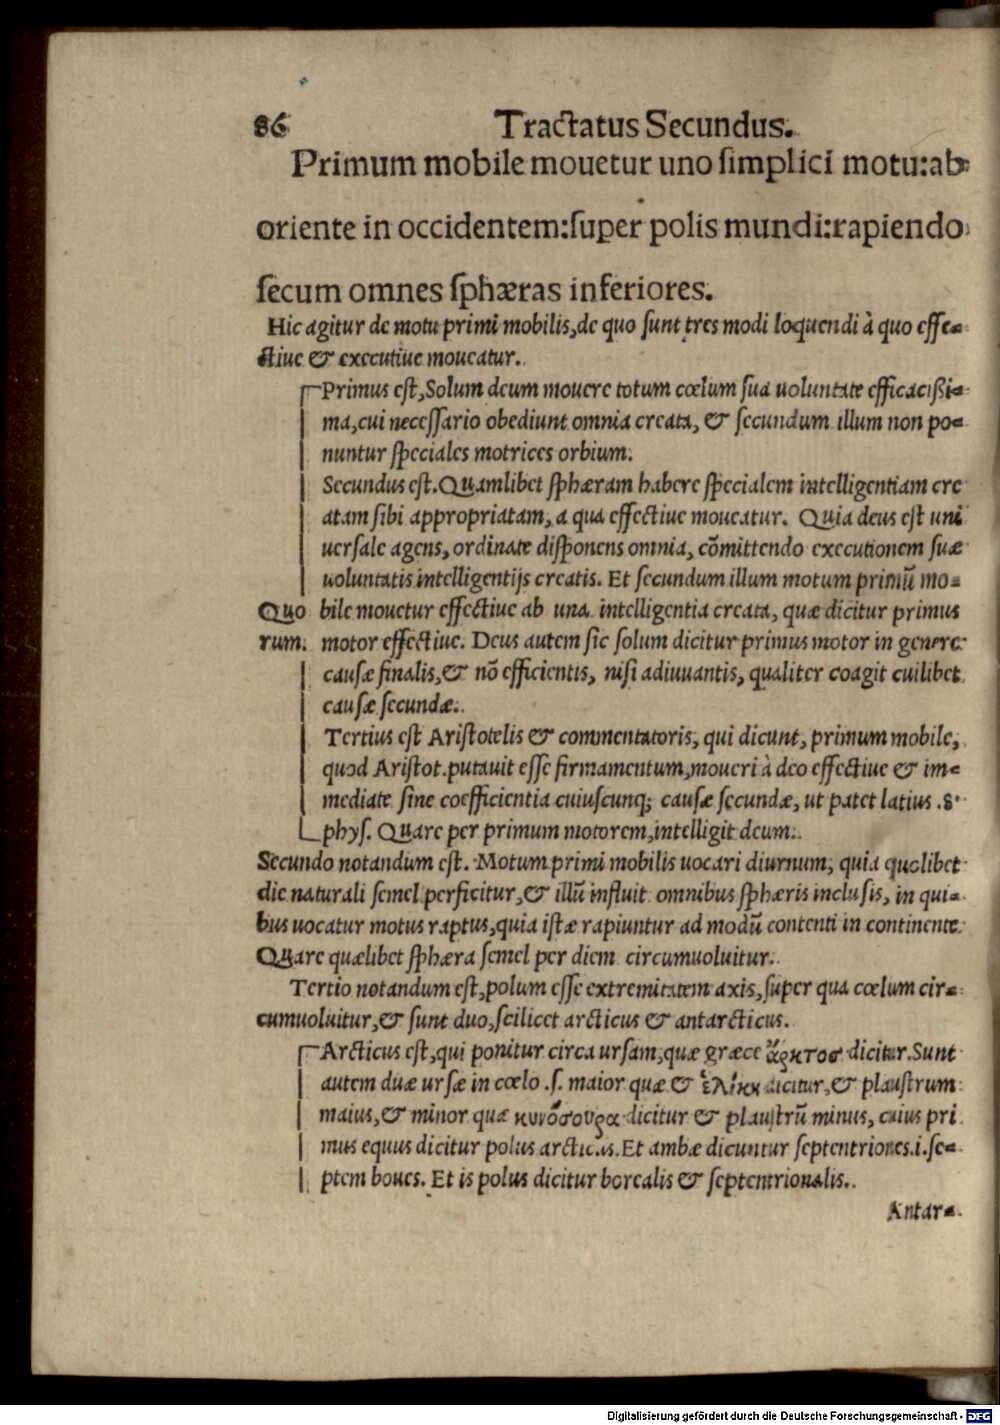 86 Tractatus Secundus.
Primum mobile mouetur uno ſimplici motu:ab
oriente in occidentem:ſuper polis mundi:rapiendo
ſecum omnes ſphæras inferiores.
Hic agitur de motu primi mobilis,de quo ſunt tres modi loquendi à quo effe-
ctiue & executiue moueatur.
Primus eſt,Solum deum mouere totum cœlum ſua uoluntate efficacißi-
ma,cui neceſſario obediunt omnia creata, & ſecundum illum non po-
nuntur ſpeciales motrices orbium.
Secundus eſt.Quamlibet ſphæram habere ſpecialem intelligentiam cre
atam ſibi appropriatam, a qua effectiue moueatur. Quia deus eſt uni
uerſale agens, ordinate diſponens omnia, cōmittendo executionem ſuæ
uoluntatis intelligentijs creatis. Et ſecundum illum motum primū mo-
Quo bile mouetur effectiue ab una intelligentia creata, quæ dicitur primus
rum. motor effectiue. Deus autem ſic ſolum dicitur primus motor in genere
cauſæ finalis,& nō efficientis, niſi adiuuantis, qualiter coagit cuilibet
cauſæ ſecundæ.
Tertius eſt Ariſtotelis & commentatoris, qui dicunt, primum mobile,
quod Ariſtot.putauit eſſe firmamentum,moueri à deo effectiue & im-
mediate ſine coefficientia cuiuſcunq; cauſæ ſecundæ, ut patet latius .8.
phyſ. Quare per primum motorem,intelligit deum.
Secundo notandum eſt. Motum primi mobilis uocari diurnum, quia quolibet
die naturali ſemel perficitur,& illū influit omnibus ſphæris incluſis, in qui-
bus uocatur motus raptus,quia iſtæ rapiuntur ad modū contenti in continente.
Quare quælibet ſphæra ſemel per diem circumuoluitur.
Tertio notandum eſt,polum eſſe extremitatem axis,ſuper qua cœlum cir-
cumuoluitur,& ſunt duo,ſcilicet arcticus & antarcticus.
Arcticus eſt,qui ponitur circa urſam,quæ græce ἄρκτοσ dicitur.Sunt
autem duæ urſæ in cœlo .ſ. maior quæ & ἑλίκη dicitur,& plauſtrum
maius,& minor quæ κυνόσουρα dicitur & plauſtrū minus, cuius pri
mus equus dicitur polus arcticus.Et ambæ dicuntur ſeptentriones.i.ſe-
ptem boues. Et is polus dicitur borealis & ſeptentrionalis.
Antar-
Digitalisierung gefördert durch die Deutsche Forschungsgemeinschaft - DFG